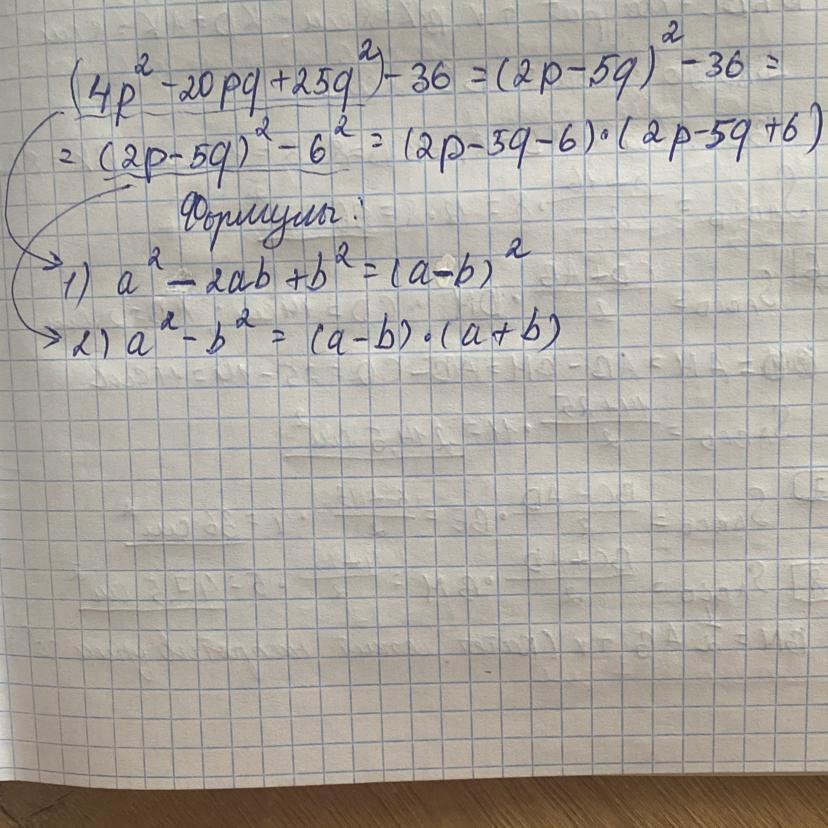 (4p² - 20pq + 25q²) - 36 = (2p - 5q)² - 36 =
= (2p - 5q)² - 6² = (2p - 5q - 6) · (2p - 5q + 6)
Формулы:
1) a² - 2ab + b² = (a - b)²
2) a² - b² = (a - b) · (a + b)